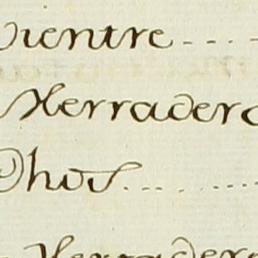 Vientre
Herradero
Ohos
Herradero